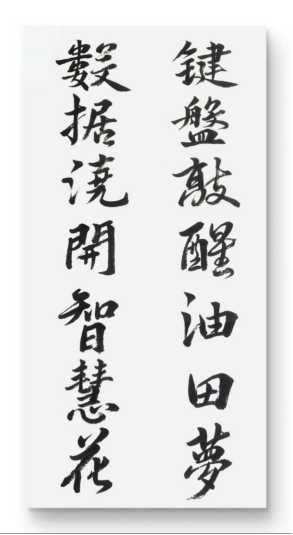 鍵盤敲醒油田夢
数据澆開智慧花